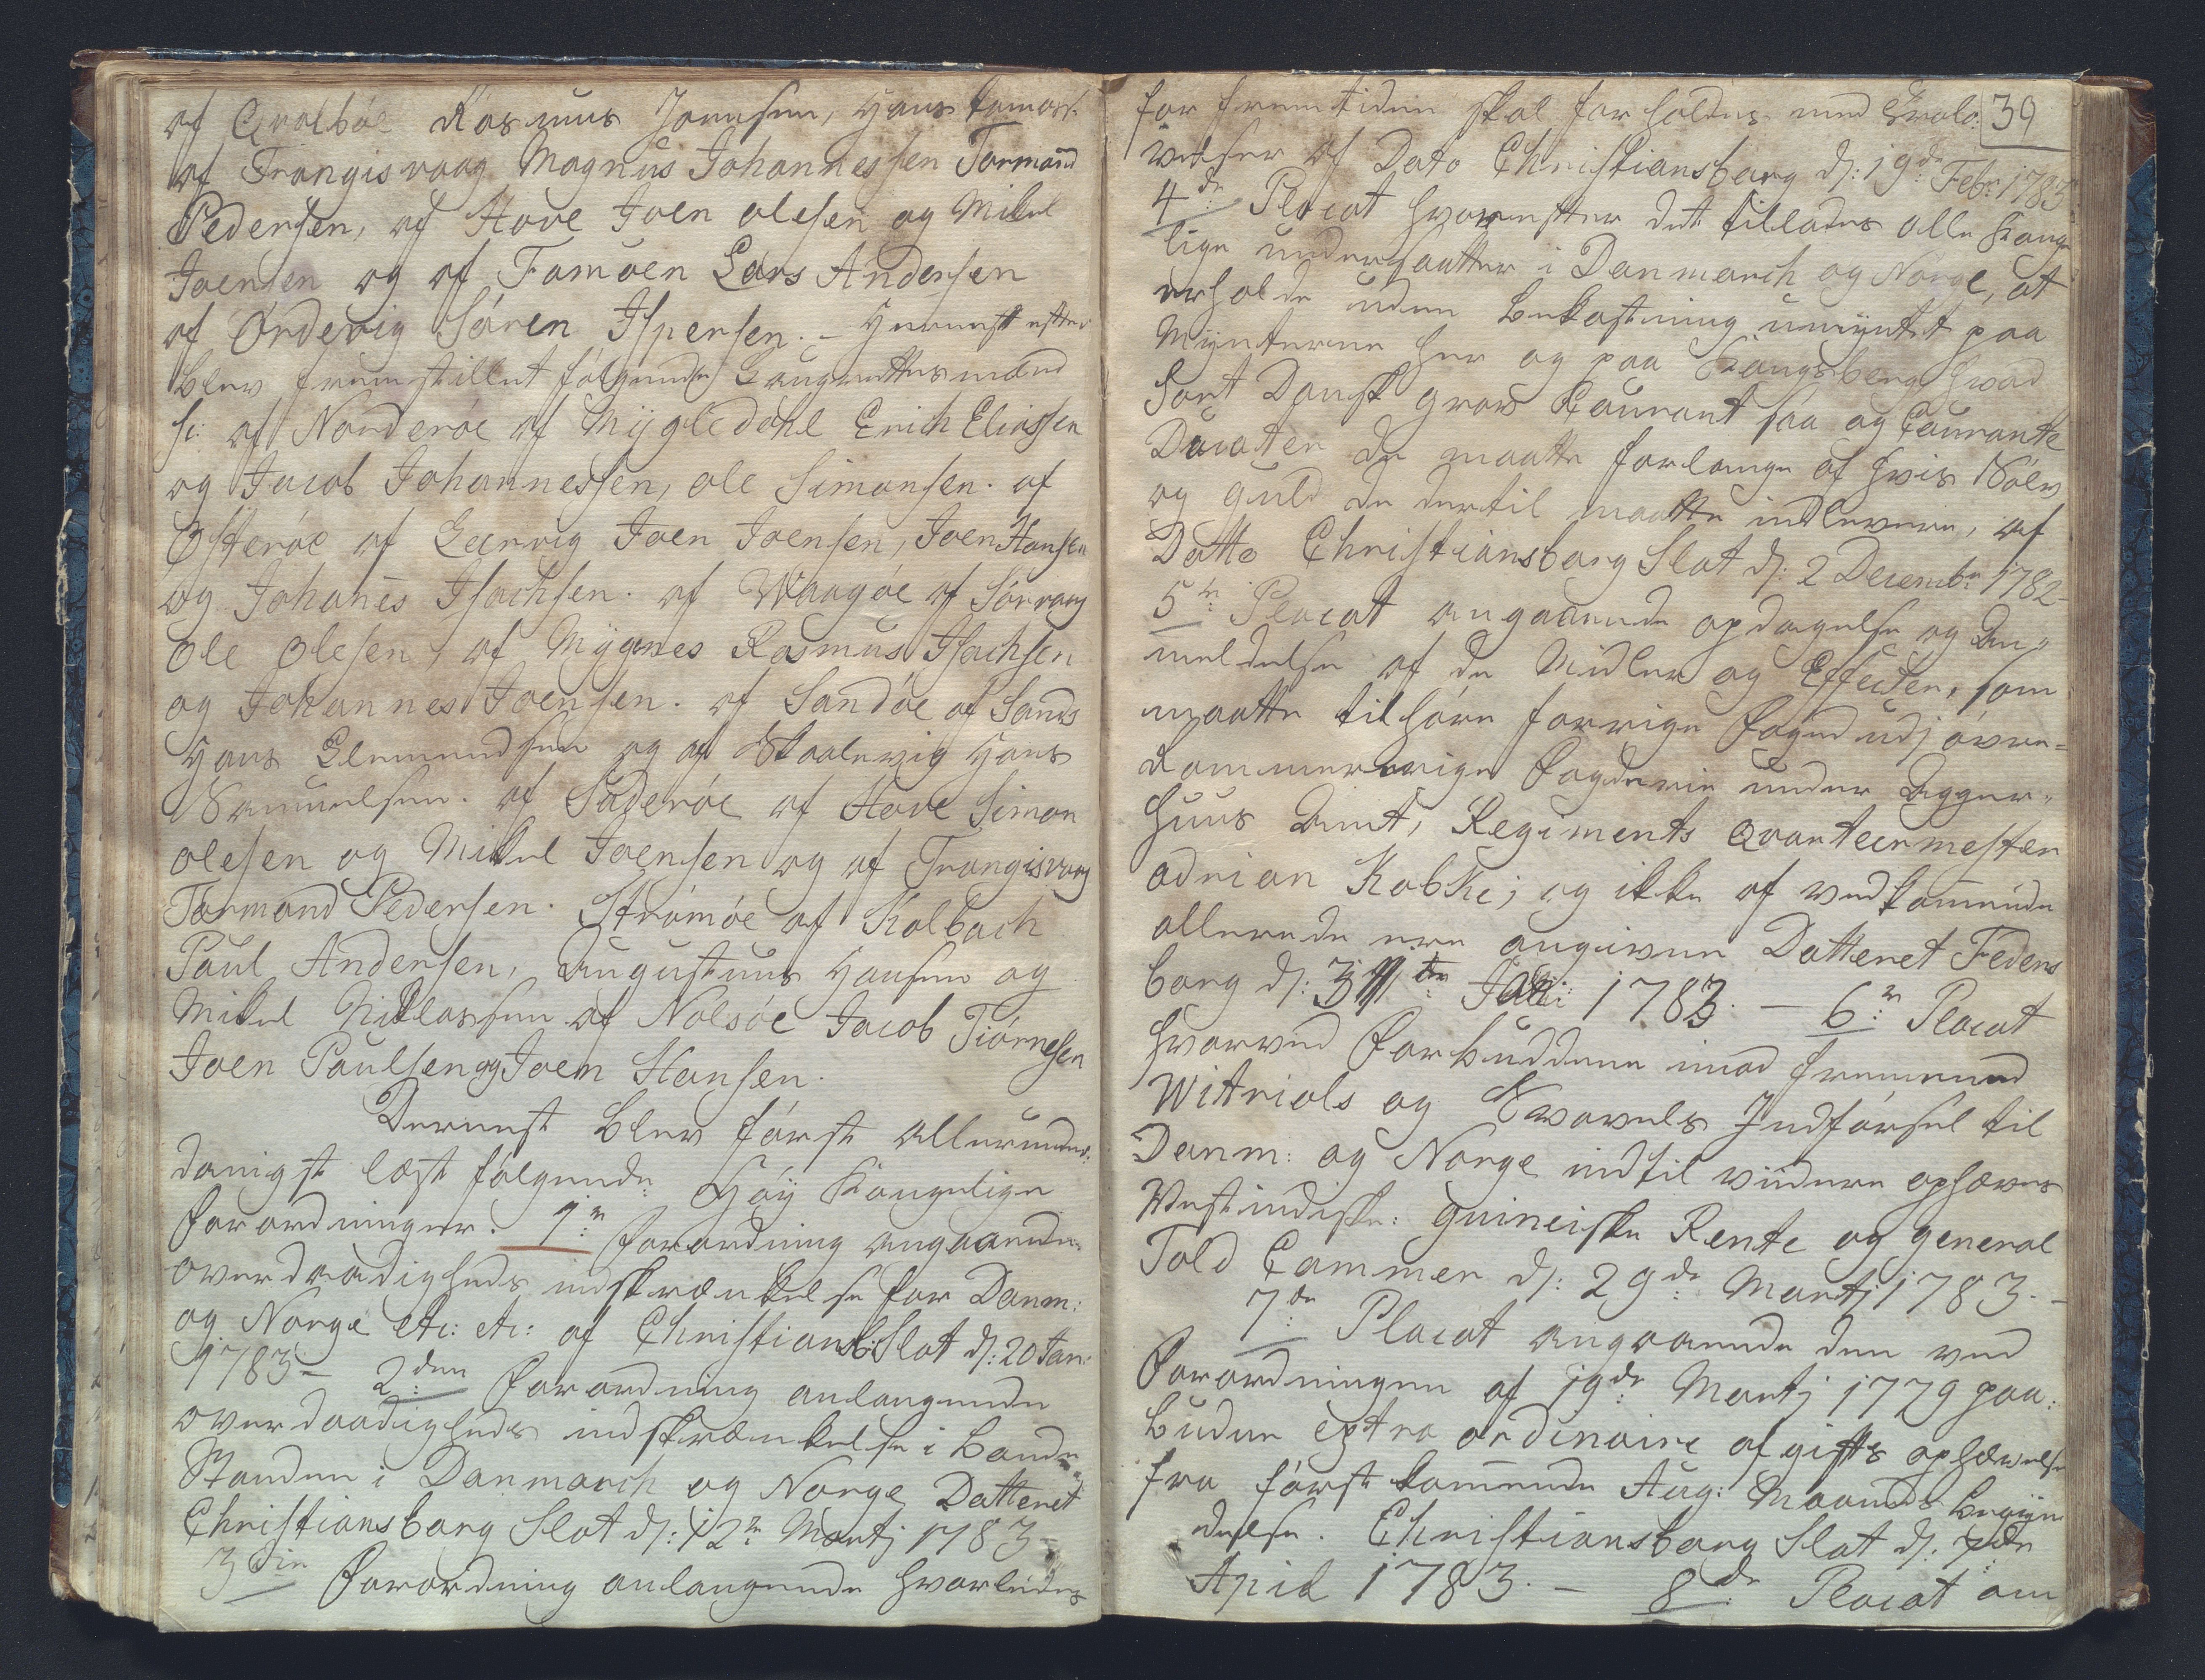 af Qvalböe Rasmus Joensen, Hans Tomass:
af Trangisvaag Magnus Johannessen Tormand
Pedersen, af Hove Joen olesen og Mikel
Joensen og af Famøen Lars Andersen
af Ördevig Sören Ispersen. – Hernest efter
blev fremstillet fölgende Laugrettesmænd
fr: af Norderöe af Mÿgledahl Erich Eliassen
og Jacob Johannessen, ole Simonsen. af
Österöe af Leervig Joen Joensen, Joen Hansen
og Johañes Isachsen. af Waagöe af Sörvaag
Ole Olesen, af Mÿgenes Rasmus Isachsen
og Johannes Joensen. af Sandöe af Sands
Hans Clemendsen og af Skaalevig Hans
Samuelsen. af Süderöe af Hove Simon
olesen og Mikel Joensen og af Trangisvaag
Tormand Pedersen. Strömöe af Kolbach
Paul Andersen, Augustinus Hansen og
Mikel Niklassen af Nolsöe Jacob Tiörnesen
Joen Paulsen og Joen Hansen.
Dernest blev först allerunder:
danigst læst fölgende Höÿ Kongelige
forordninger. 1te: forordning angaaende
overdaadigheds indskrænkelse for Danm:
og Norge etc: etc: af Christiansb: Slot d: 20 Jan:
1783 – 2den forordning anlangende
overdaadigheds indskrænkelse i Bonde
Standen i Danmarch og Norge Datteret
Christiansborg Slot d: 12te Martj 1783 –
3die Forordning anlangende hvorledes
39
for fremtiden skal forholdes med
af Dato Christiansborg d: 19de Feb: 1783
4de: Placat hvorefter det tillades alle Konge
lige undersaatter i Danmarch og Norge, at
erholde uden bekostning ümÿntet paa
Mÿnterne her og paa Kongsberg hvad
Sort Dansk grov Courant saa og Courante
Ducater de maatte forlange af hvis Sölv
og guld de dertil maatte indlevere, af
Datto Christiansborg Slot d: 2 Decembr: 1782 –
5te: Placat angaaende opdagelse og An„
meldelse af de Midler og Effecter, som
maatte tilhöre forrige foged udj övre=
Rommerrige Fogderie under Agger„
huus Amt, Regiments Qvarteermester
adrian Kobke; og ikke af vedkom̄ende
allerede ere angivne Datteret Fedens
borg d: 31te Julii 1783. – 6te: Placat
hvorved Forbuddene imod fremmed
Witriols og Svovels Indförsel til
Danm: og Norge indtil viidere ophæves
Westindiske: guineiske Rente og general
Told Cammer d: 29de: Martj 1783. –
7de: Placat angaaende den ved
Forordningen af 19de: Martj 1779 paa:
budne extra ordinaire afgifts ophævelse
fra först kom̄ende Aug: Maaneds begÿn
delse. Christiansborg Slot d: 7de
April 1783. – 8de: Placat om